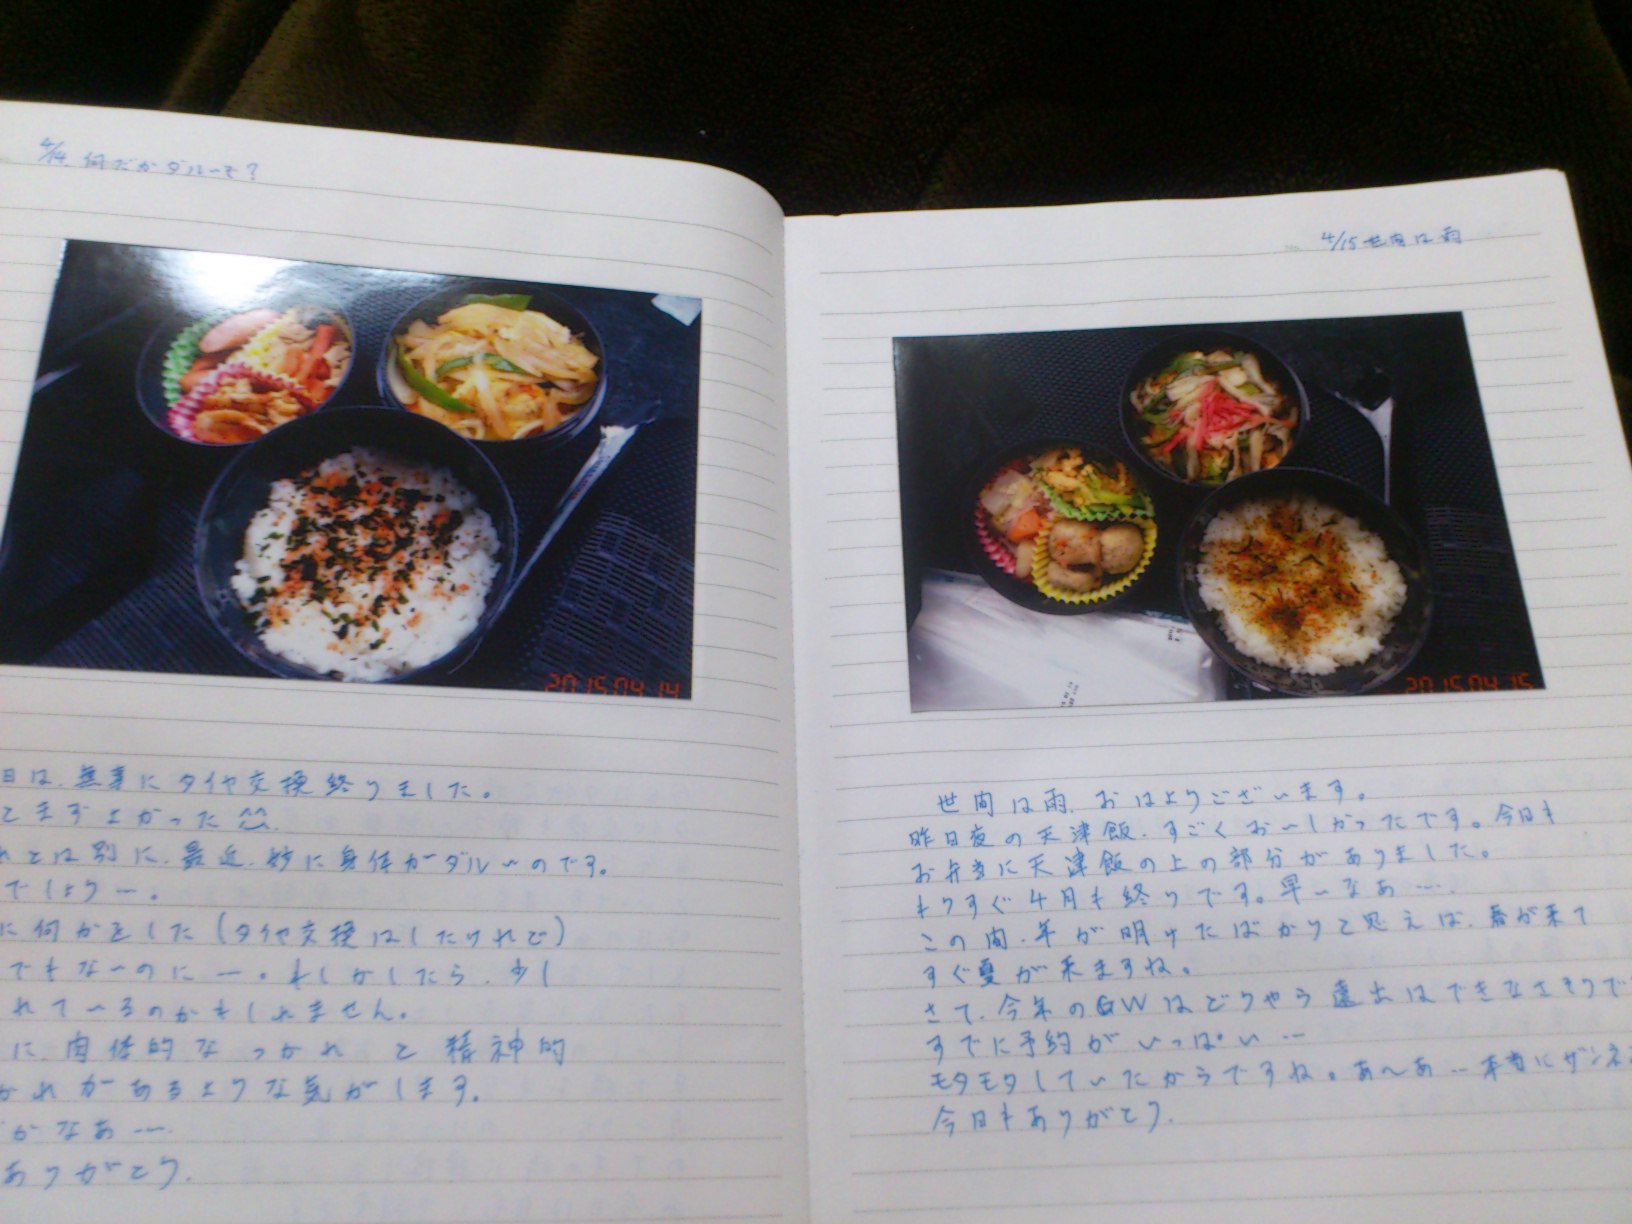 4/14. 何だかダルーモ?
2015 04 14
日は、無事にタイヤ交換終りました。
てまずよかった ^^.
れとは別に、最近、妙に身体がダルいのです。
でしょうー。
に何かをした(タイヤ交換はしたけれど)
でもないのにー。もしかしたら、少し
れているのかもしれません。
に、肉体的なつかれ と 精神的
かれがあるような気がします。
かなあ…
ありがとう.
4/15 世間は雨
2015 04 15
世間は雨、おはようございます。
昨日夜の天津飯、すごくおいしかったです。今日も
お弁当に天津飯の上の部分がありました。
もうすぐ4月も終りです。早いなあ….
この間、年が明けたばかりと思えば、春が来て
すぐ夏が来ますね。
さて、今年のGWはどうやら遠出はできなさそうで
すでに予約がいっぱい…
モタモタしていたからですね。あ〜あ…本当にザンネ
今日もありがとう.